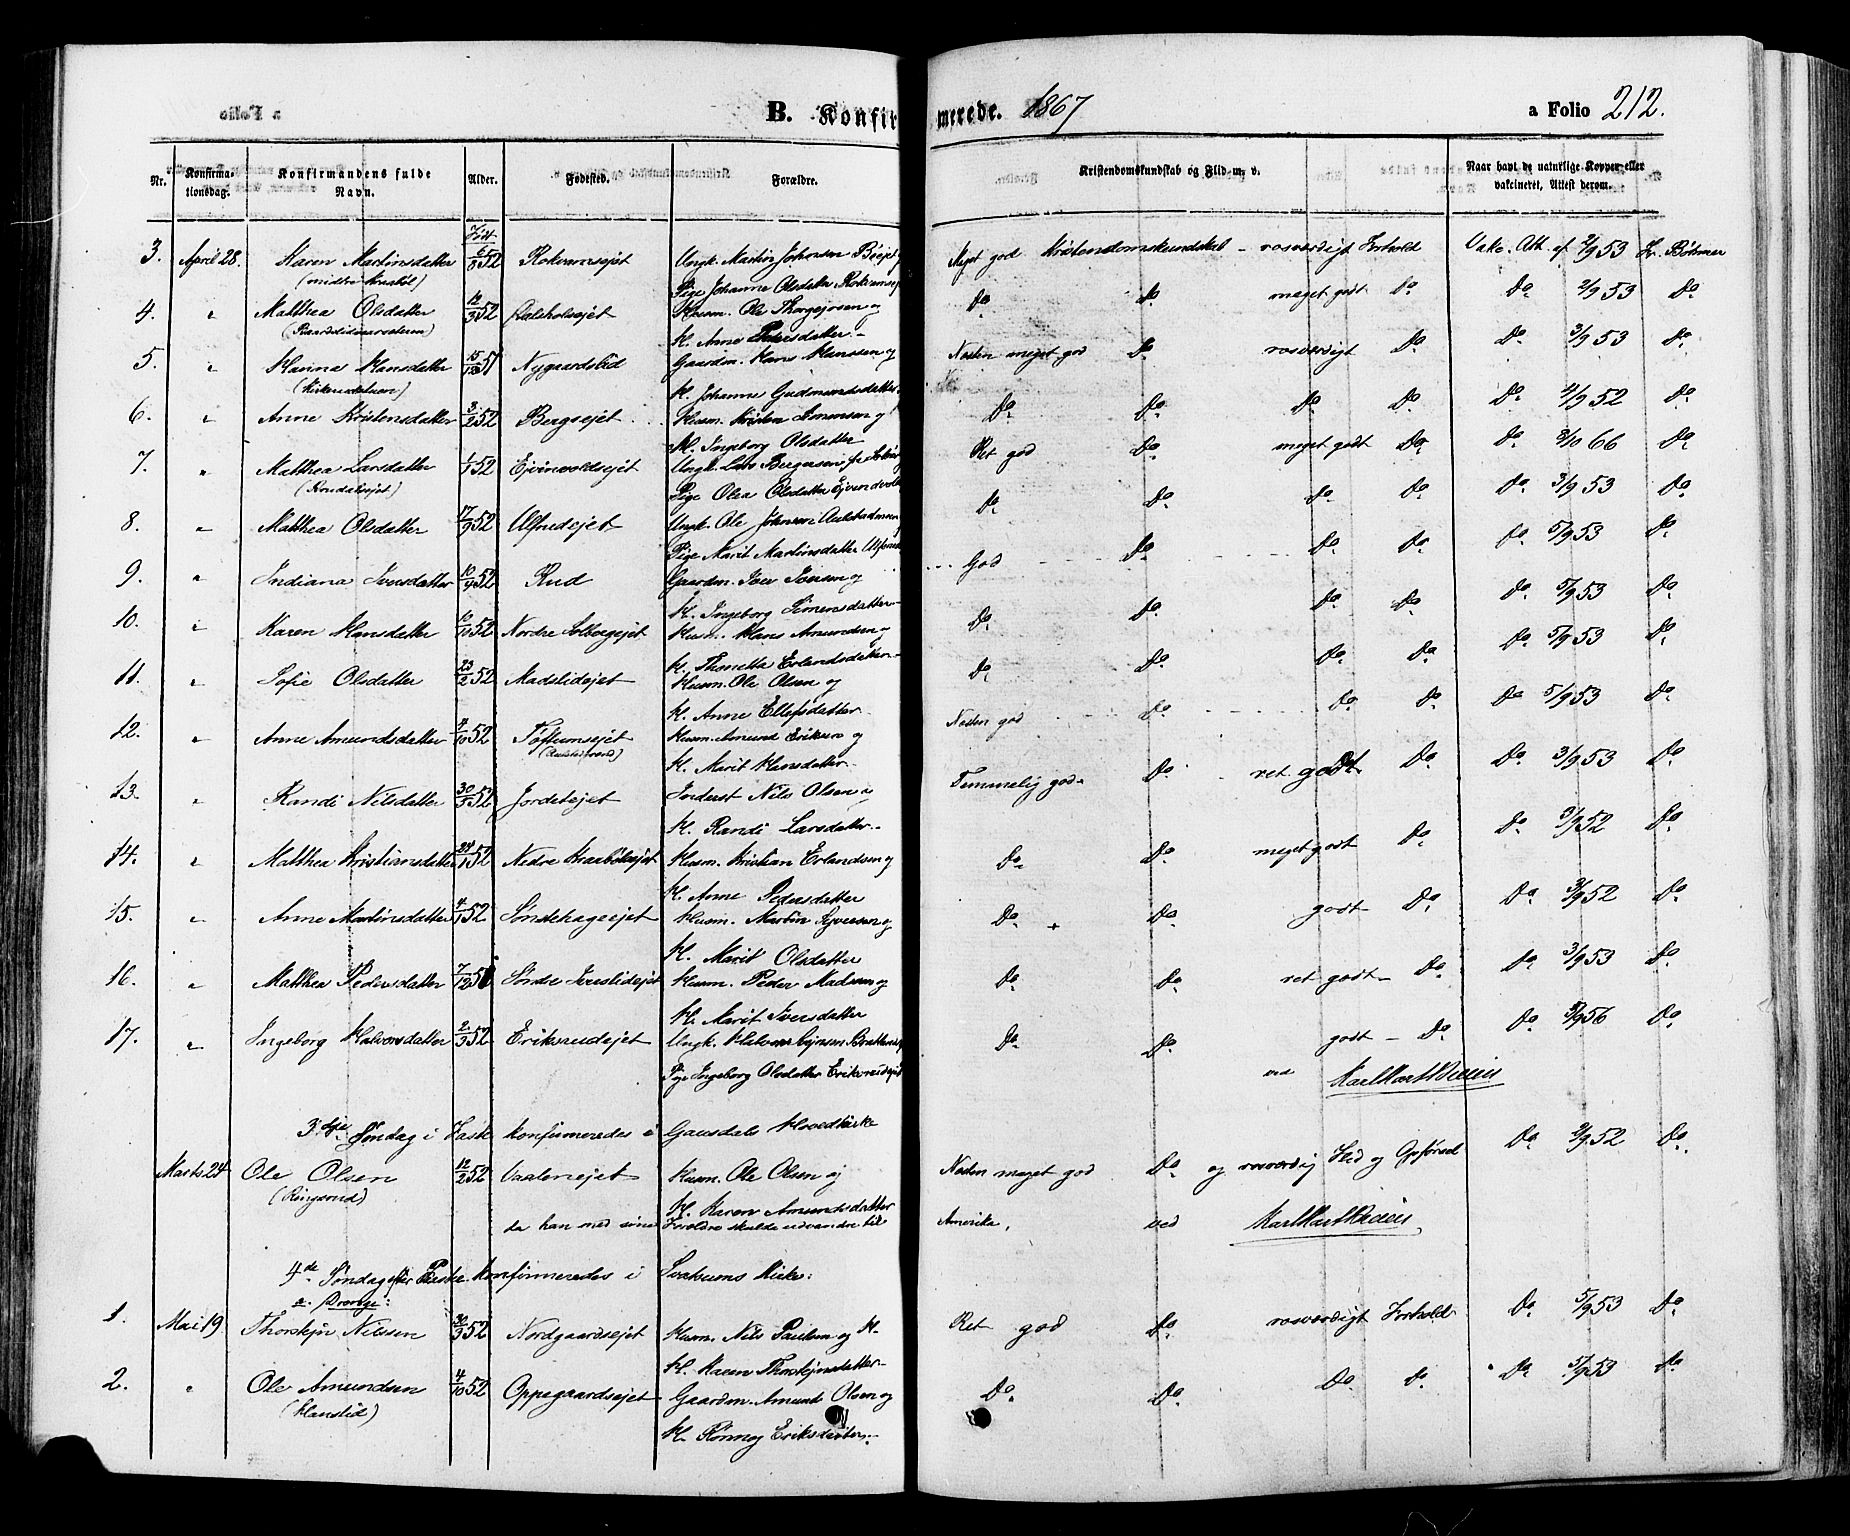 B. Konfirmerede. 1867
a Folio 212.
Nr. Konfirmationsdag. Konfirmandens fulde Navn. Alder. Fødested. Forældre. Kristendomskundskab og Flid m. v. Naar havt de naturlige Kopper eller vakcineret, Attest derom.
3. April 28. Karen Martinsdatter 52 Ungk. Martin Johansen Meget god Kristendomskundskab – rosværdigt Forhold Vakc. Att. af 2/9 53 Hr. Böhmer
Pige Johanne Olsdatter
4. " Matthea Olsdatter 12/3 52 Husm. Ole og Do Do meget godt Do Do 2/9 53 Do
K. Anne Pedersdatter
5. " Karina Hansdatter 15/12 51 Nygaardslid Gaardm. Hans Hanssen og Næsten meget god Do rosværdigt Do Do 3/9 53 Do
K. Johanne Gudmundsdatter
6. " Anne Kristensdatter 3/2 52 Bergsejet Husm. Kristen Simensen og Do Do Do Do Do 4/9 52 Do
K. Ingeborg Olsdatter
7. " Matthea Larsdatter 1/1 52 Ejvindvoldsejet Ungk. Lars Ret god Do meget godt Do Do 3/10 66 Do
Pige Olea Olsdatter
8. " Matthea Olsdatter 17/9 52 Ulfsrudsejet Ungk. Ole Johnsen Do Do Do Do Do 3/9 53 Do
Pige Marit Martinsdatter
9. " Indiana Iversdatter 10/4 52 Rud Gaardm. Iver Iversen og God Do Do Do Do 5/9 53 Do
K. Ingeborg Simensdatter
10. " Karen Hansdatter 52 Nordre Solbergejet Husm. Hans Amundsen og Do Do Do Do Do 5/9 53 Do
K. Thonetta Erlandsdatter
11. " Sofie Olsdatter 23/2 52 Madslidejet Husm. Ole Olsen og Do Do Do Do Do 5/9 53 Do
K. Anne Ellefsdatter
12. " Anne Amundsdatter 4/10 52 Toftumsejet Husm. Amund Eriksen og Næsten god Do Do Do Do 5/9 53 Do
K. Marit Hansdatter
13. " Randi Nilsdatter 30/5 52 Jordetejet Inderst Nils Olsen og Temmelig god Do ret godt Do Do 3/9 53 Do
K. Randi Larsdatter
14. " Matthea Kristiansdatter 24/1 52 Nedre Husm. Kristian Erlandsen og Do Do meget godt Do Do 3/9 52 Do
K. Anne Pedersdatter
15. " Anne Martinsdatter 4/1 52 Søndehageejet Husm. Martin Syversen og Do Do godt Do Do 3/9 52 Do
K. Marit Olsdatter
16. " Matthea Pedersdatter 7/12 51 Søndre Husm. Peder Madsen og Do Do ret godt Do Do 3/9 53 Do
K. Marit Iversdatter
17. " Ingeborg Halvorsdatter 2/3 52 Eriksrudsejet Ungk. Halvor Do Do godt – Do Do 56 Do
Pige Ingeborg Olsdatter Eriksrudsejet ved
3die Søndag i Faste konfirmeredes i Gausdals Hovedkirke
Marts 24 Ole Olsen 12/2 52 Vaalensejet Husm. Ole Olsen og Næsten meget god Do og rosværdig Flid og Opførsel Do 2/9 52 Do
(Ringsrud) K. Karen Amundsdatter
da han med sine Forældre skulde udvandre til Amerika, ved
4de Søndag efter Paaske konfirmeredes i Svatsums Kirke:
a. Drenge:
1. Mai 19 Thorstejn Nilssen 30/3 52 Nordgaardsejet Husm. Nils Paulsen og H. Ret god Do rosværdigt Forhold Do 5/9 53 Do
K. Karen Thorstejnsdatter
2. " Ole Amundsen 4/10 52 Oppegaardsejet Gaardm. Amund Olsen og Do Do Do Do Do 5/9 53 Do
(Hanslid) K. Rønnog Eriksdatter